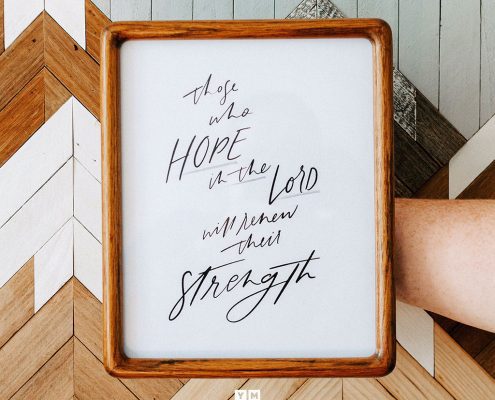 those
who
HOPE
in the
LORD
will renew
their
strength
YM